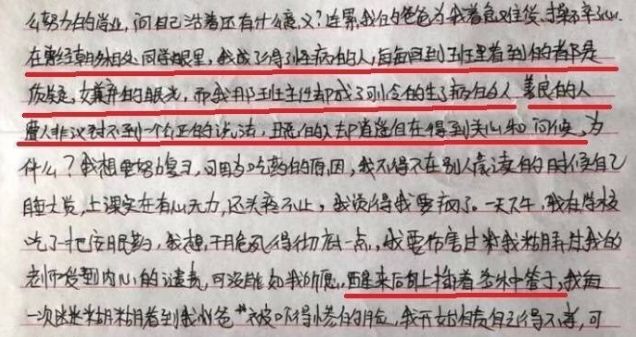 么努力的学业,问自己活着还有什么意义?连累我的爸爸为我着急住复,操碎了心。
在曾经朝夕相处同学眼里,我成了得了怪病的人,每每回到班里看到的都是
质疑,嫌弃的眼光,而我那班主任却成了可怜的生了病的人善良的人
受人非议讨不到个公正的说法,丑恶的人却逍遥自在得到关心和问候,为
什么?我想要努力复习,可因为吃药的原因,我不得不在别人晨读的时候自己
睡大觉,上课实在有心无力,还头疼不止,我觉得我要疯了。一天下午,我在学校
吃了一把安眠药,我想,干脆死得彻底一点,我要伤害过我
老师受到内心的谴责,可没能如我所愿,醒来后身上插着
一次迷迷糊糊看到我爸爸被吓得惨白的脸,我开始自责自己得不孝,可